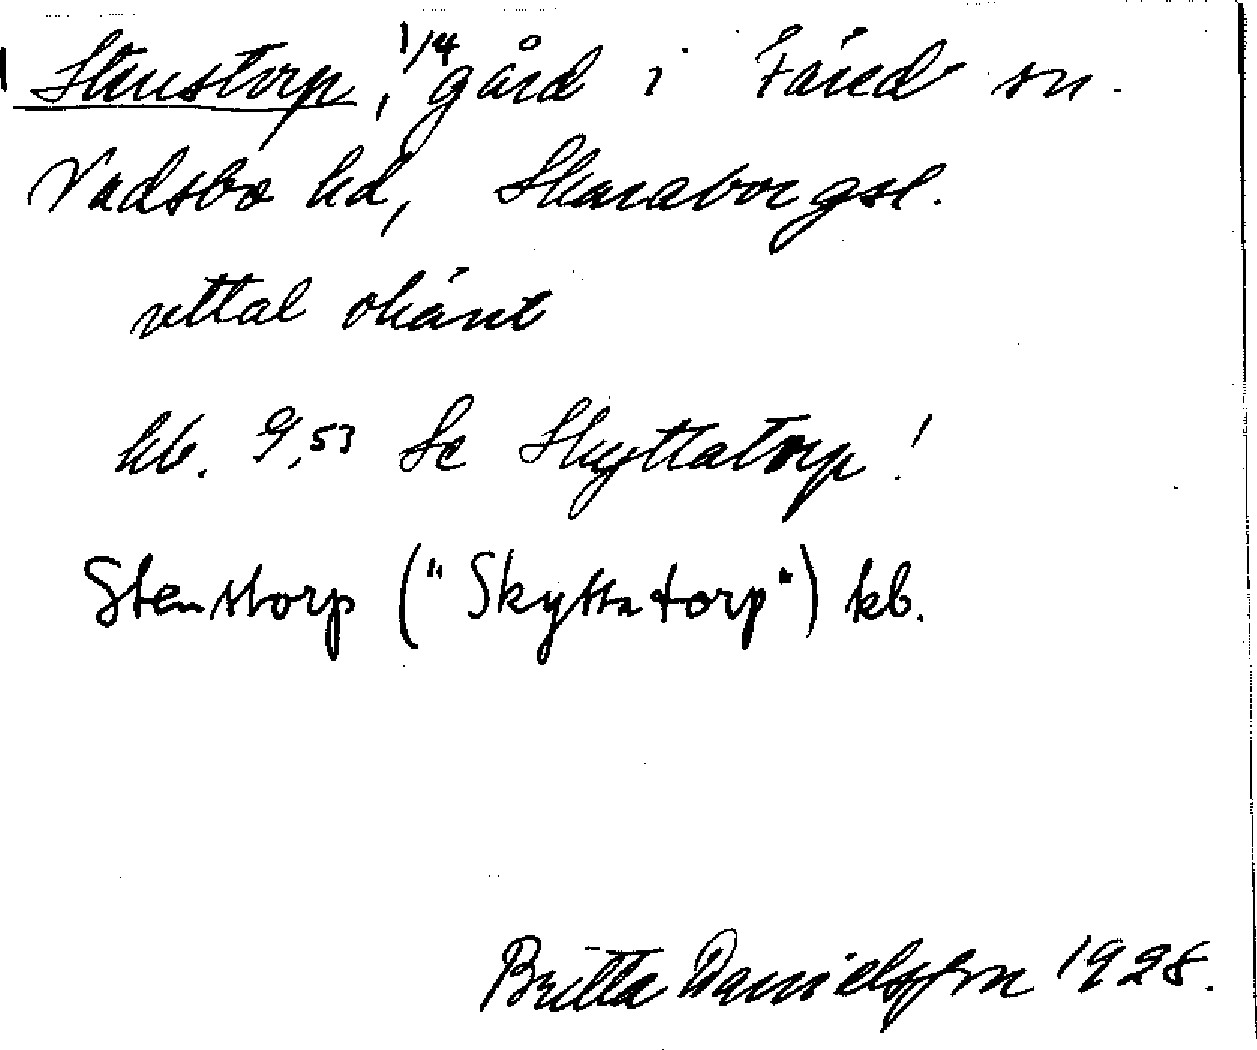 Stenstorp, 1/4 gård i Färed sn.
Vadsbo hd, Skaraborgsl.
uttal okänt
kb. 9,53 Se Skyttatorp!
Stenstorp ("Skyttatorp") kb.
Britta Danielsson 1928.